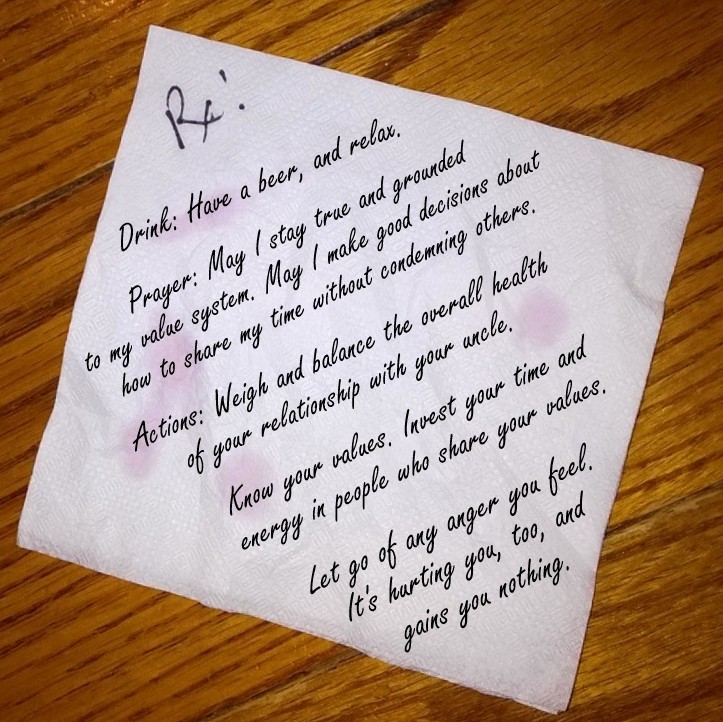 Rx:
Drink: Have a beer, and relax.
Prayer: May I stay true and grounded
to my value system. May I make good decisions about
how to share my time without condemning others.
Actions: Weigh and balance the overall health
of your relationship with your uncle.
Know your values. Invest your time and
energy in people who share your values.
Let go of any anger you feel.
It's hurting you, too, and
gains you nothing.